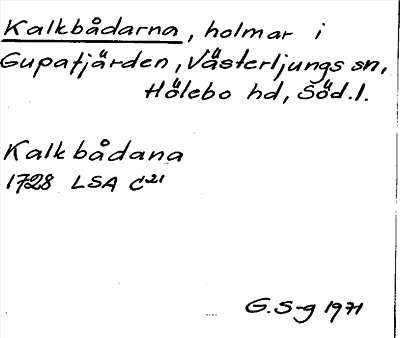 Kalkbådarna, holmar i
Gupafjärden, Västerljungs sn,
Hölebo hd, Söd.l.
Kalkbådana
1728 LSA C21
G.S-g 1971